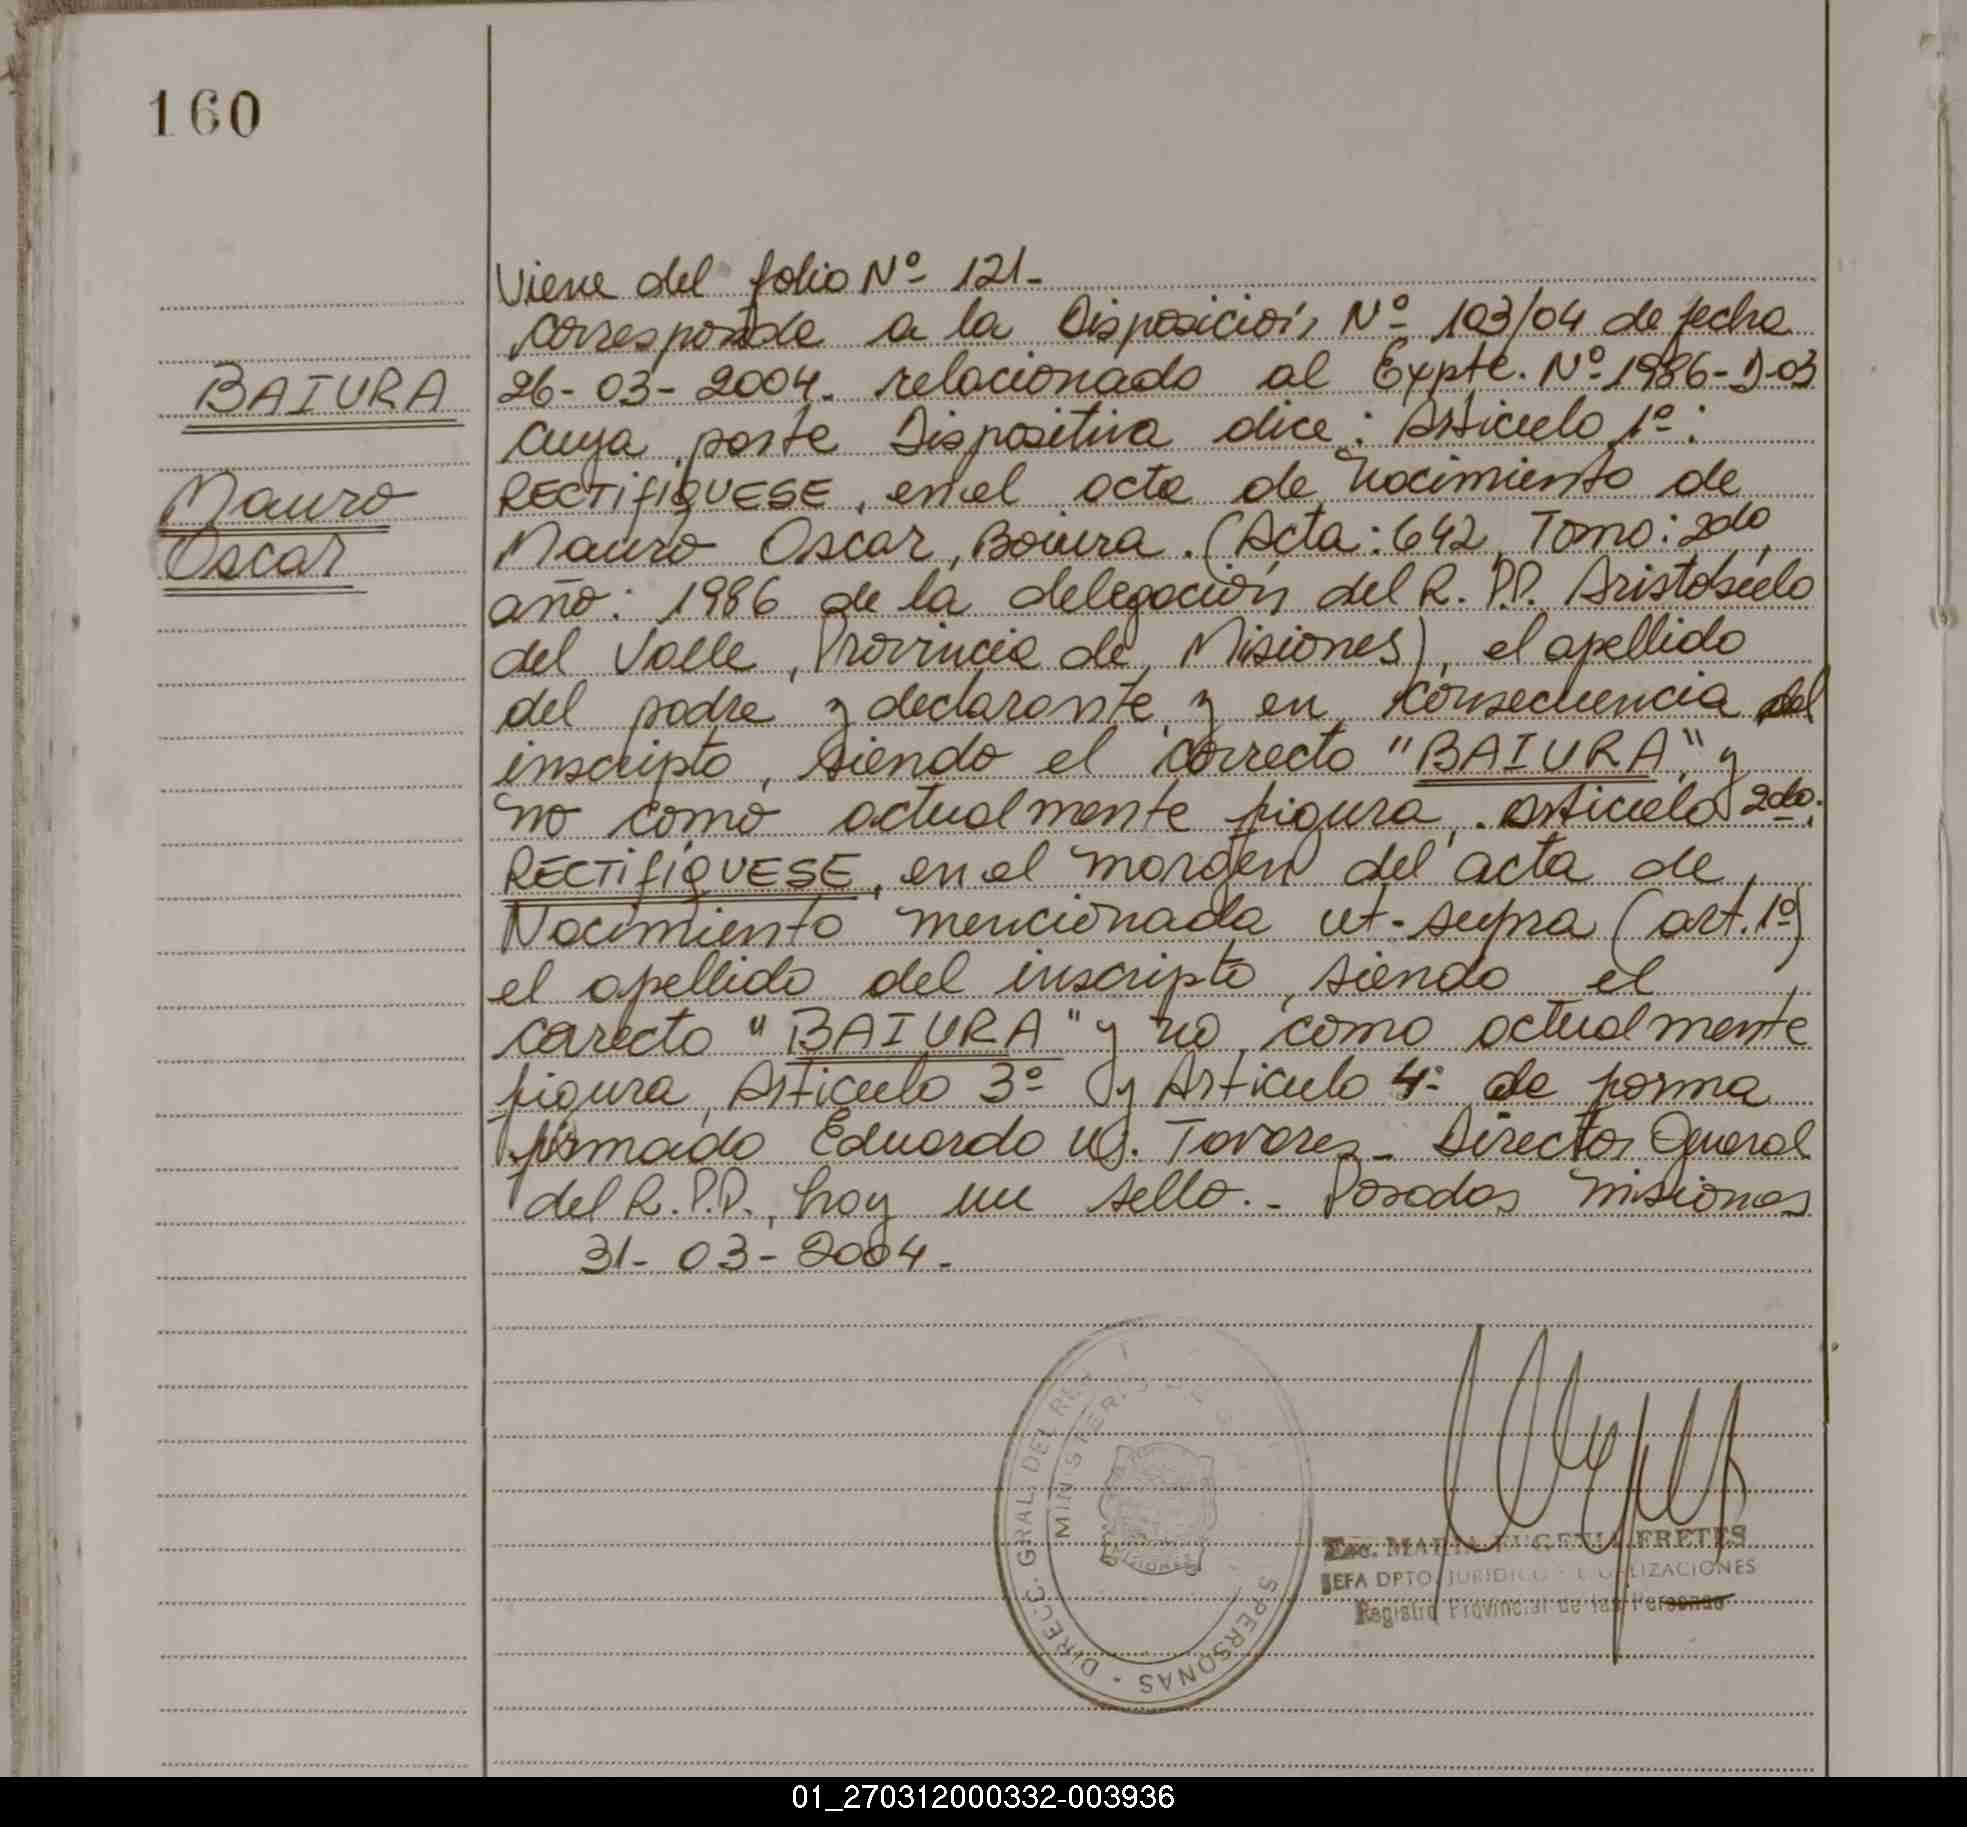 160
BAIURA
Mauro
Oscar
Viene del folio Nº 121-
corresponde a la Disposición Nº 103/04 de fecha
26-03-2004. relacionado al Expte. Nº 1986-D-03
cuya parte Dispositiva dice: Articulo 1º:
RECTIFIQUESE, en el acta de Nacimiento de
Mauro Oscar, Baiura. (Acta: 642, Tomo: 2do,
año: 1986 de la delegación del R.P.P. Aristobulo
del Valle, Provincia de Misiones), el apellido
del padre y declarante y en consecuencia del
inscripto, siendo el correcto "BAIURA", y
no como actualmente figura. Articulo 2do:
RECTIFIQUESE, en el margen del acta de
Nacimiento mencionada ut-supra (art. 1º)
el apellido del inscripto, siendo el
correcto "BAIURA" y no como actualmente
figura, Articulo 3º y Articulo 4º de forma
firmado Eduardo W. Tavares - Director General
del R.P.P., hay un sello.- Posadas Misiones
31-03-2004.
DIRECC. GRAL. DEL REG
S PERSONAS -
MINISTERIO DE
MISIONES
Esc. MARIA EUGENIA FRETES
JEFA DPTO. JURIDICO
Registro Provincial de las Personas
01_270312000332-003936